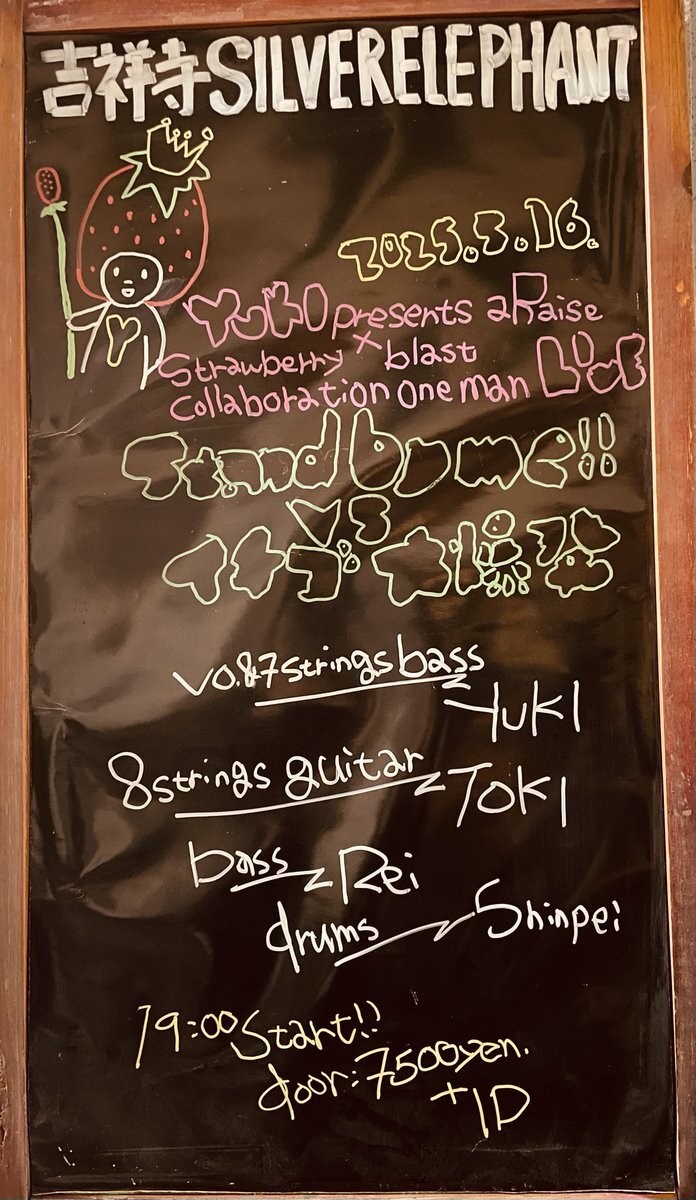 吉祥寺SILVERELEPHANT
2025.5.16.
YUKI presents aRaise
Strawberry × blast
Collaboration one man LIVE
Stand by me!!
VS
イチゴ大爆発
Vo.&7strings bass
YUKI
8strings guitar TOKI
bass Rei
drums Shinpei
19:00 Start!!
door:7500yen.
+1D
Y